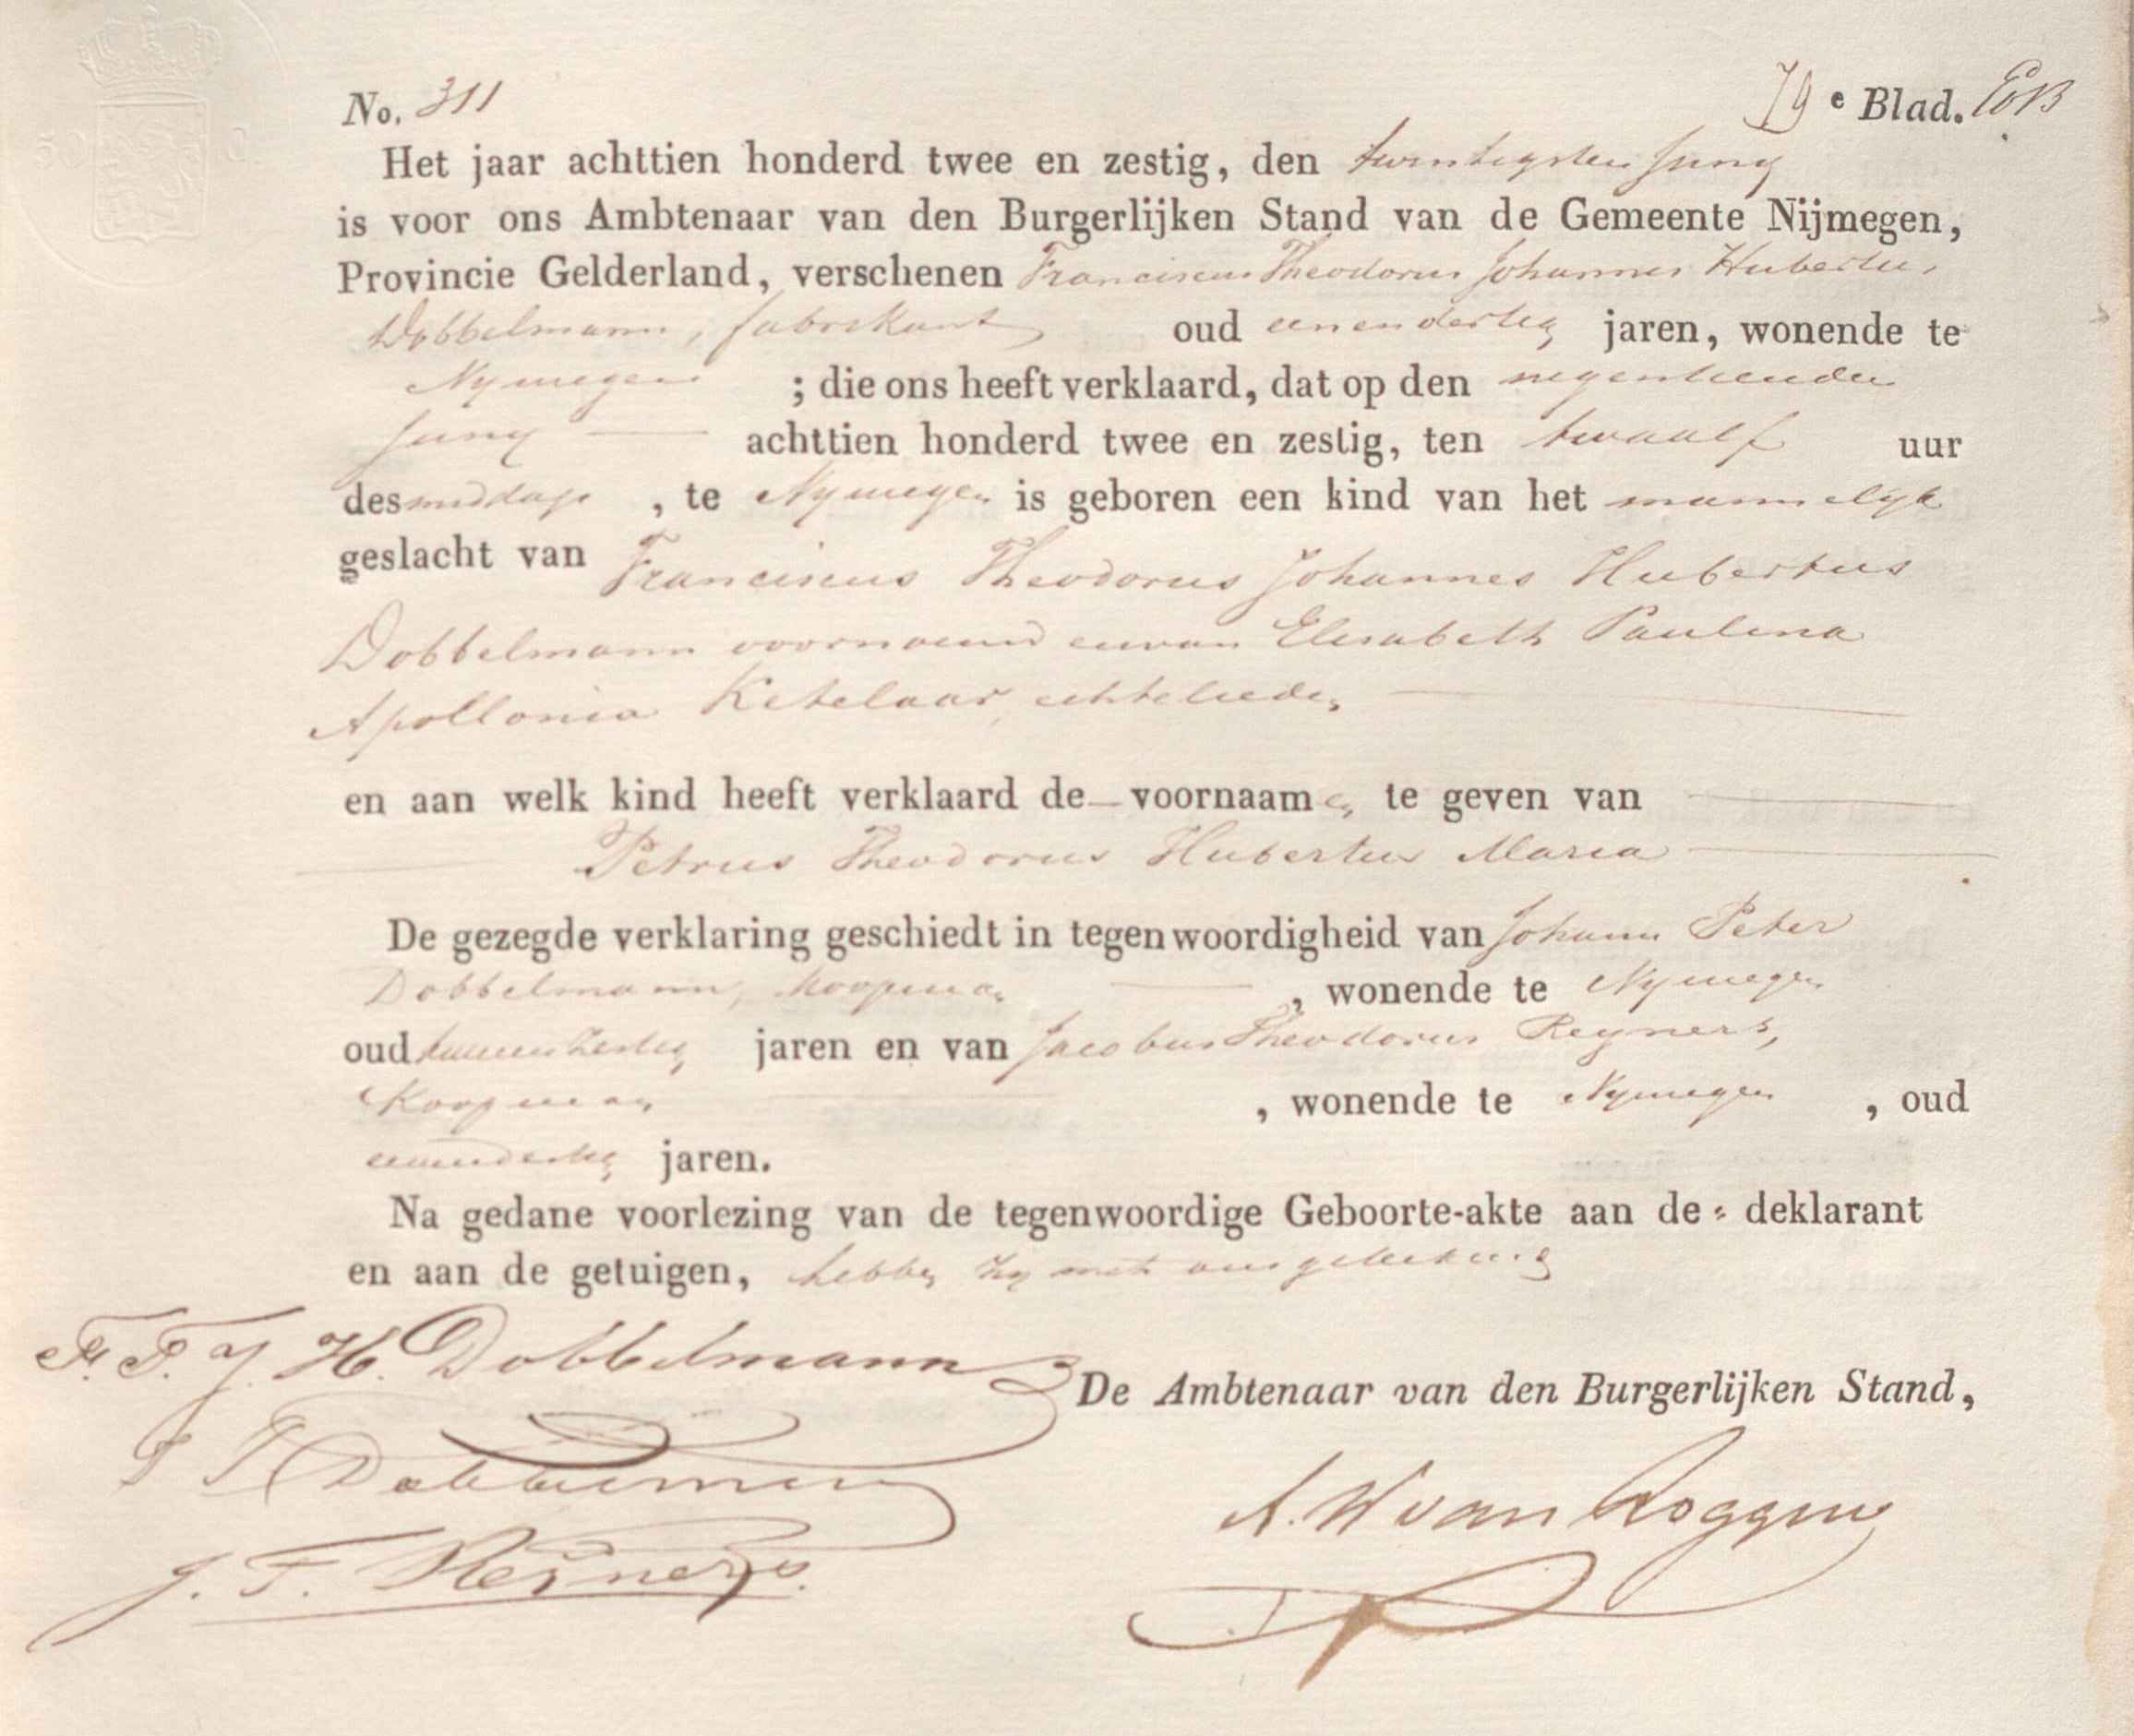 No. 311 79e Blad. EvB
Het jaar achttien honderd twee en zestig, den twintigsten Juny
is voor ons Ambtenaar van den Burgerlijken Stand van de Gemeente Nijmegen,
Provincie Gelderland, verschenen Franciscus Theodorus Johannes Hubertus
Dobbelmann, fabrikant oud eenendertig jaren, wonende te
Nymegen ; die ons heeft verklaard, dat op den negentienden
Juny achttien honderd twee en zestig, ten twaalf uur
des middags , te Nymegen is geboren een kind van het mannelyk
geslacht van Franciscus Theodorus Johannes Hubertus
Dobbelmann voornoemd en van Elisabeth Paulina
Apollonia Ketelaar, echtelieden
en aan welk kind heeft verklaard de voornaamen te geven van
Petrus Theodorus Hubertus Maria
De gezegde verklaring geschiedt in tegenwoordigheid van Johann Peter
Dobbelmann, Koopman , wonende te Nymegen
oud jaren en van Jacobus Theodorus Reyners,
Koopman , wonende te Nymegen , oud
eenendertig jaren.
Na gedane voorlezing van de tegenwoordige Geboorte-akte aan de deklarant
en aan de getuigen, hebben zy met ons geteekend
F. T. J. H. Dobbelmann
De Ambtenaar van den Burgerlijken Stand,
J P Dobbelmann
A. W van Roggen
J. T. Reÿners.